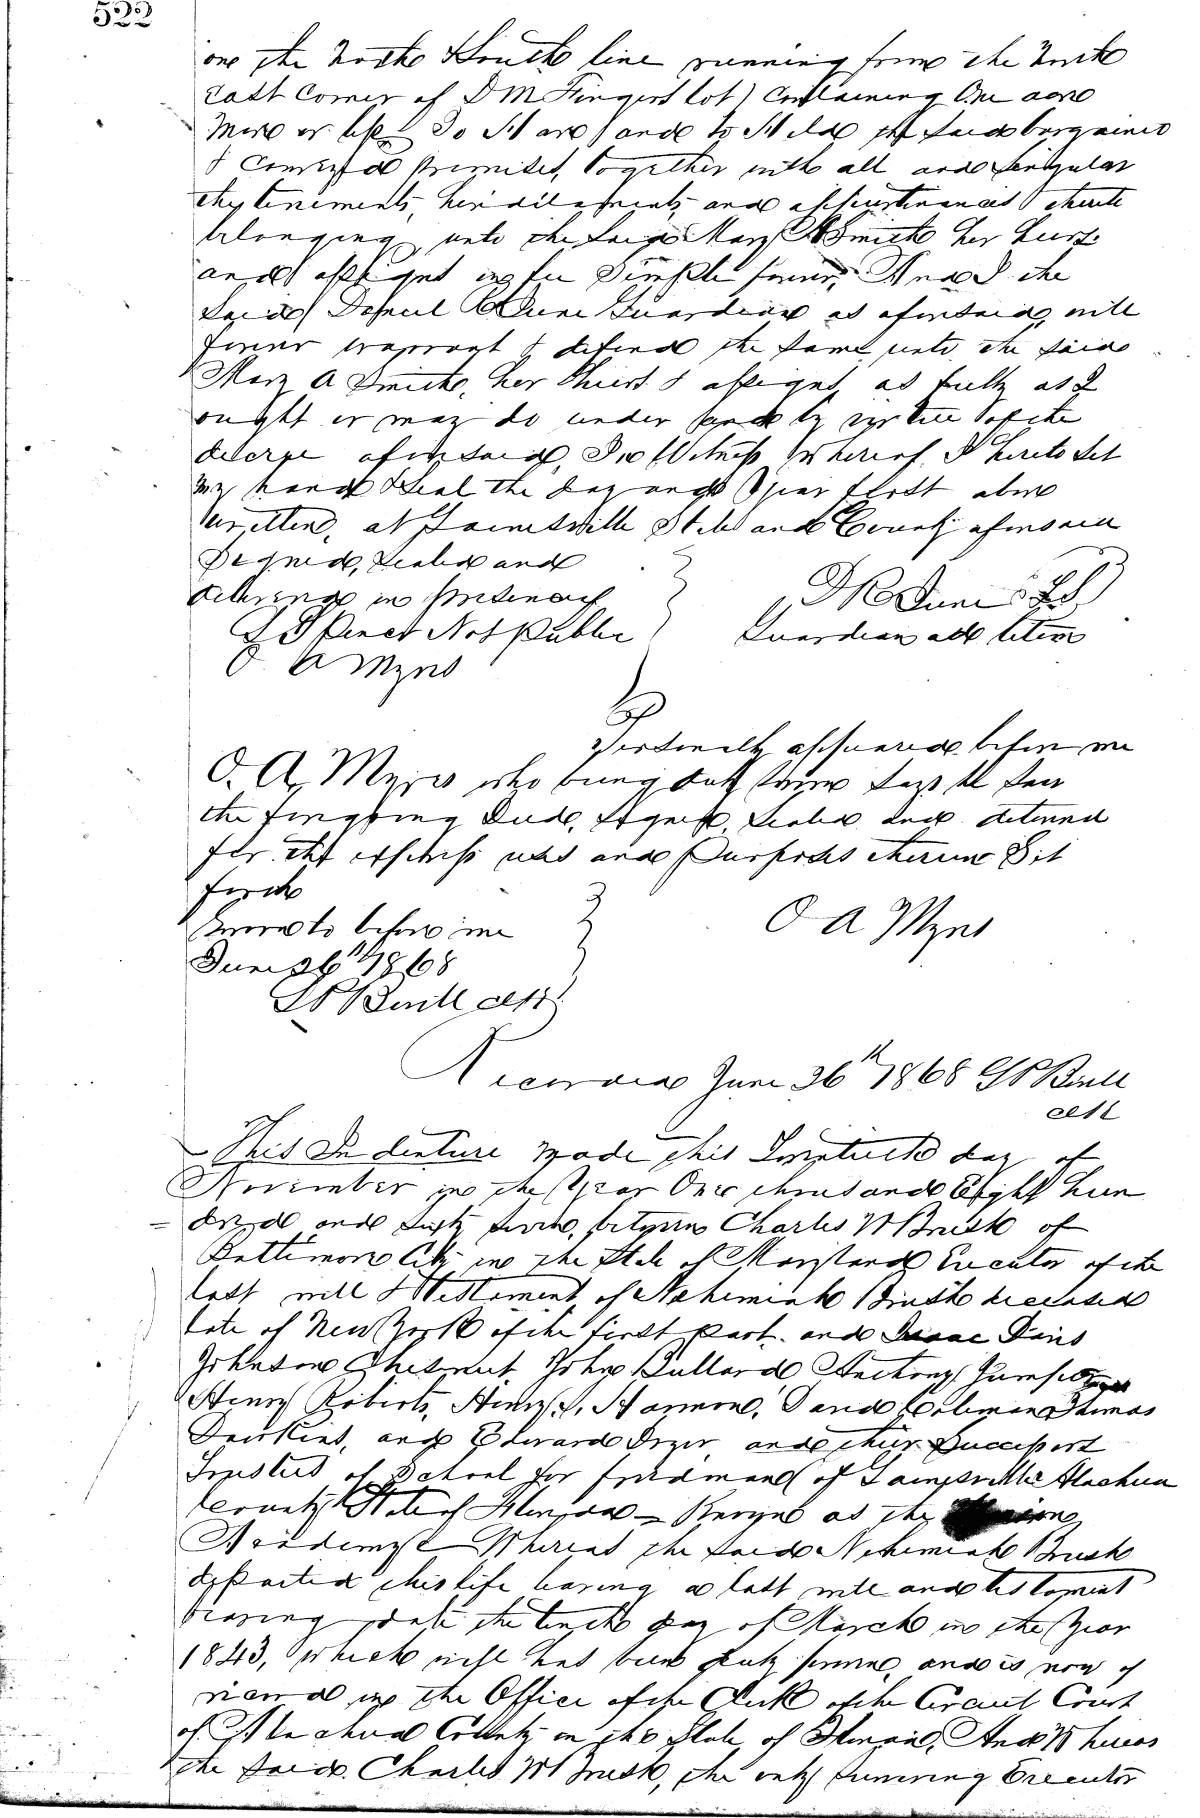 522
on the North & South line running from the North
East Corner of D M Fingers lot) Containing One acre
more or less To Have and to Hold the said bargained
& Conveyed premises, together with all and singular
the tenements, hereditaments, and appurtenances thereto
belonging unto the said Mary A Smith her heirs
and assigns in fee Simple forever, And I the
said Daniel R June Guardian as aforesaid, will
forever warrant & defend the same unto the said
Mary A Smith, her heirs & assigns, as fully as I
ought or may do under and by virtue of the
decree aforesaid, In Witness Whereof I hereto set
my hand & seal the day and year first above
written, at Gainesville State and County aforesaid
Signed, Sealed and
delivered in presence of
D R June LS
Not Public
Guardian ad litem
O A Myers
Personally appeared before me
O. A. Myers who being duly sworn says he saw
the foregoing Deed, signed, sealed and delivered
for the express uses and purposes therein Set
forth
Sworn to before me
O A Myers
June 26th 1868
Clk
Recorded June 26th 1868
Clk
This Indenture made this Twentieth day of
November in the Year One thousand Eight hun
dred and sixty seven, between Charles W Brush of
Baltimore City in the State of Maryland Executor of the
last will & Testament of Nehemiah Brush deceased
late of New York of the first part and Isaac Davis
Johnson Chesnut, John Bullard, Anthony
Henry Roberts, Henry S. Harmon, David Coleman Thomas
Dawkins, and Edward Dozier and their Successors
Trustees of School for freedmans of Gainesville Alachua
County State of Florida - Known as the Union
Academy Whereas the said Nehemiah Brush
departed this life leaving a last will and testament
bearing date the tenth day of March in the Year
1843, which will has been duly proven, and is now of
record in the Office of the Clerk of the Circuit Court
of Alachua County in the State of Florida, And Whereas
the said Charles W Brush, the only surviving Executor